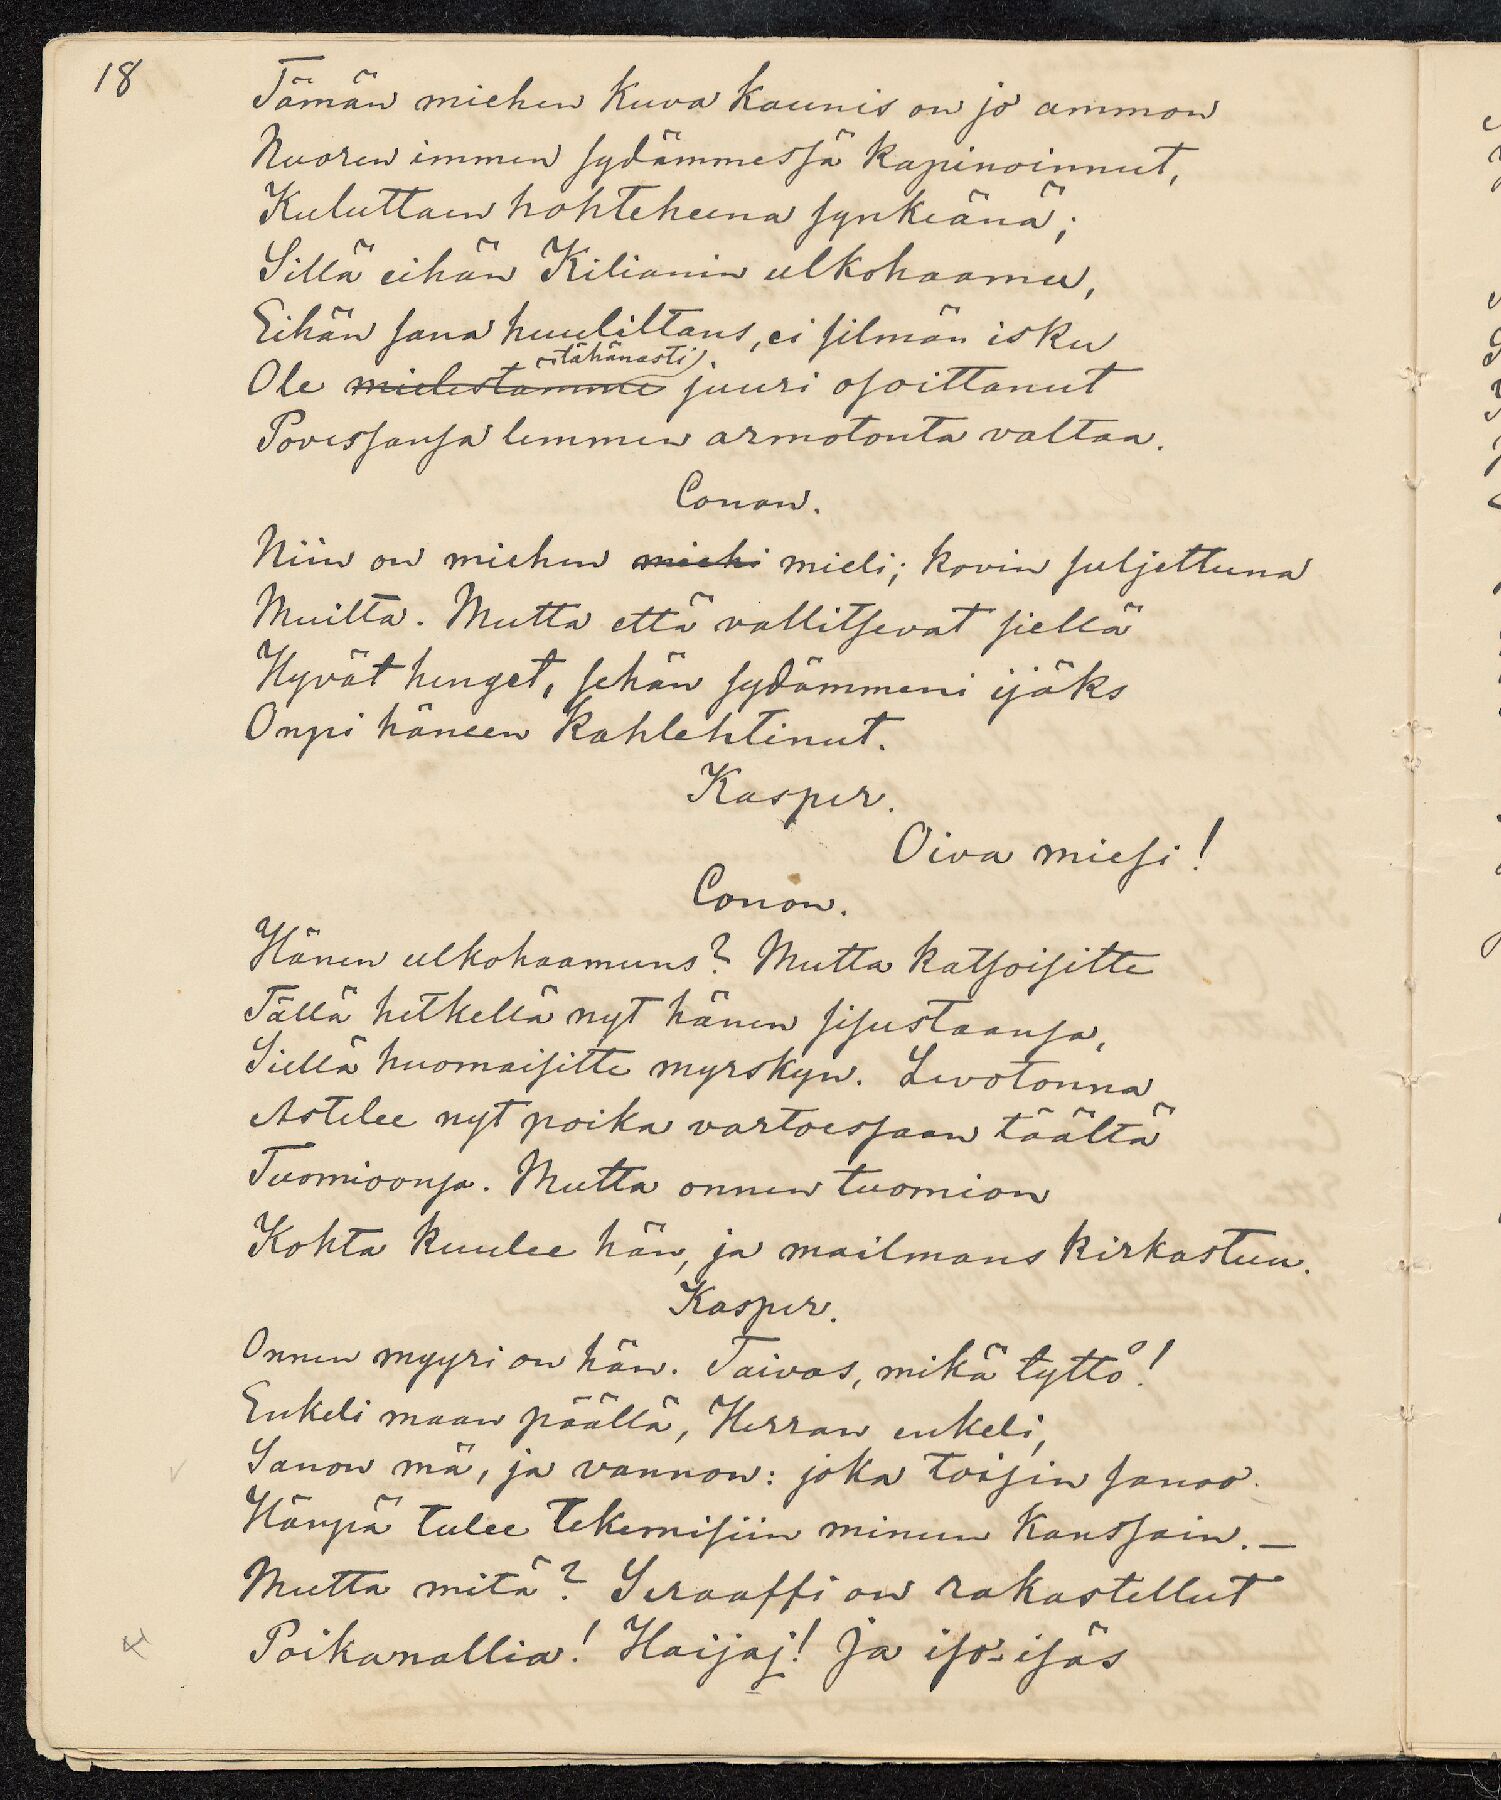 18
Tämän miehen kuva kaunis on jo ammon
Nuoren immen sydämmessä kapinoinnut,
Kuluttaen hohteheena synkeänä;
Sillä eihän Kilianin ulkohaamu,
Eihän sana huuliltans, ei silmän isku
tähänasti
Ole mielestämme juuri osoittanut
Povessansa lemmen armotonta valtaa.
Conon.
Niin on miehen miehi mieli; kovin suljettuna
Muilta. Mutta että vallitsevat siellä
Hyvät henget, sehän sydämmeni ijäks
Onpi häneen kahlehtinut.
Kasper.
Oiva miesi!
Conon.
Hänen ulkohaamuns? Mutta katsoisitte
Tällä hetkellä nyt hänen sisustaansa,
Siellä huomaisitte myrskyn. Levotonna
Astelee nyt poika vartoessaan täältä
Tuomioonsa. Mutta onnen tuomion
Kohta kuulee hän, ja mailmans kirkastuu.
Kasper.
Onnen myyri on hän. Taivas, mikä tyttö!
Enkeli maan päällä, Herran enkeli,
Sanon mä, ja vannon: joka toisin sanoo.
Hänpä tulee tekemisiin minun kanssain. —
Mutta mitä? Seraaffi on rakastellut
Poikanallia! Haijaj! Ja iso-isäs